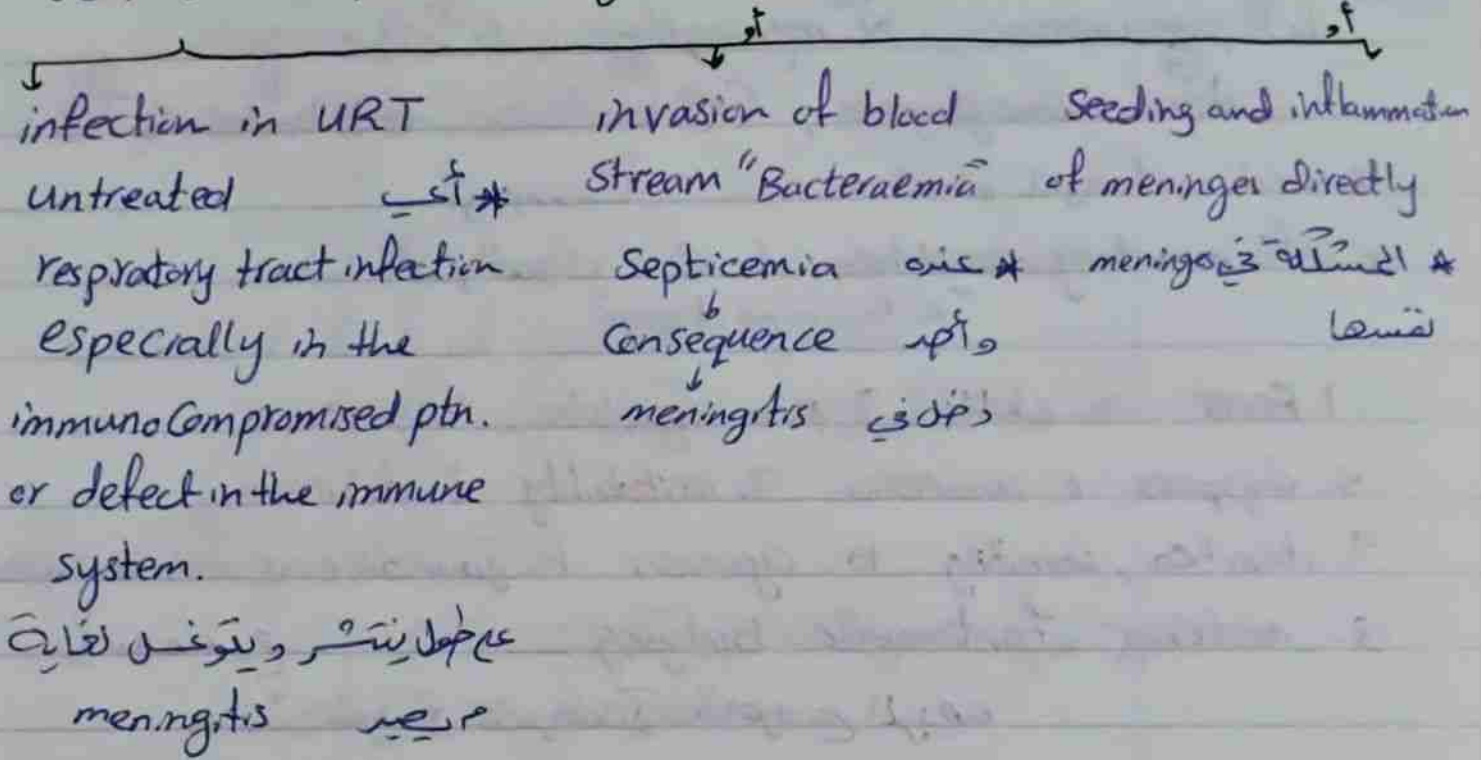 أو
أو
infection in URT
untreated * أي
respratory tract infection
especially in the
immunoCompromised ptn.
or defect in the immune
system.
على طول ينتشر ويتوغل لغاية
م يصير meningitis
invasion of blood
Stream "Bacteraemia"
* عنده Septicemia
وأحد Consequence
دخل في meningitis
Seeding and inflammation
of meninges directly
* المشكلة في meninges
نفسها